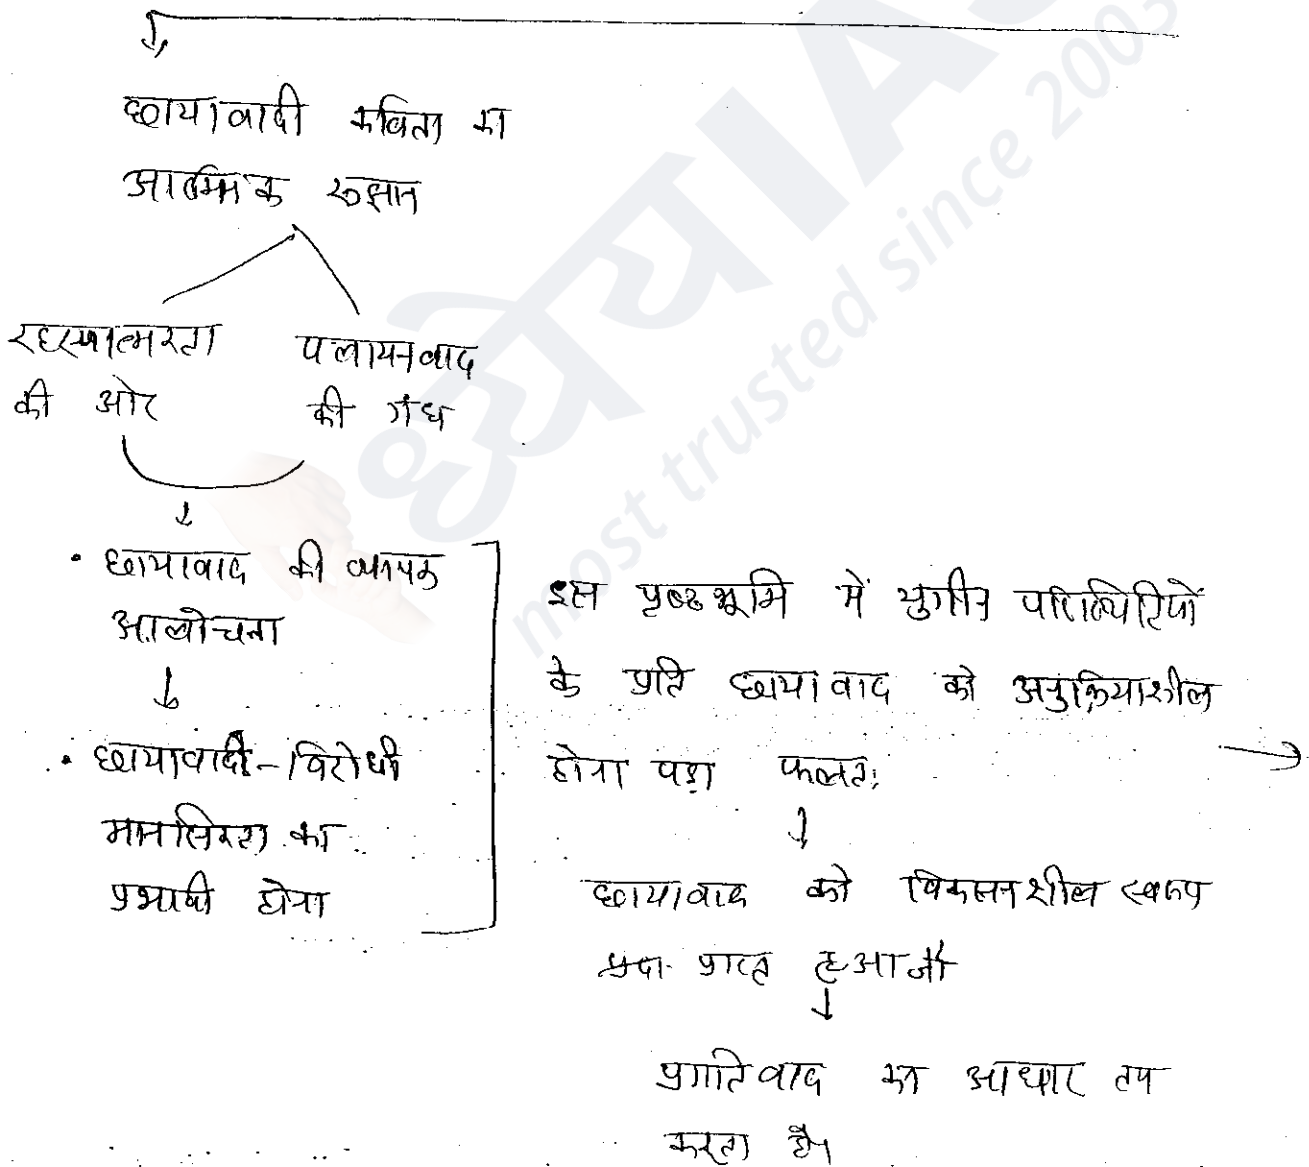 छायावादी कविता का
आरम्भिक रुझान
रहस्यात्मकता
की ओर
पलायनवाद
की गंध
• छायावाद की व्यापक
आलोचना
• छायावादी-विरोधी
मानसिकता का
प्रभावी होना
इस पृष्ठभूमि में युगीन परिस्थितियों
के प्रति छायावाद को अनुक्रियाशील
होना पड़ा फलतः
छायावाद को विकसनशील स्वरूप
प्राप्त हुआ जो
प्रगतिवाद का आधार तय
करता है।
ध्येय IAS
most trusted since 2003